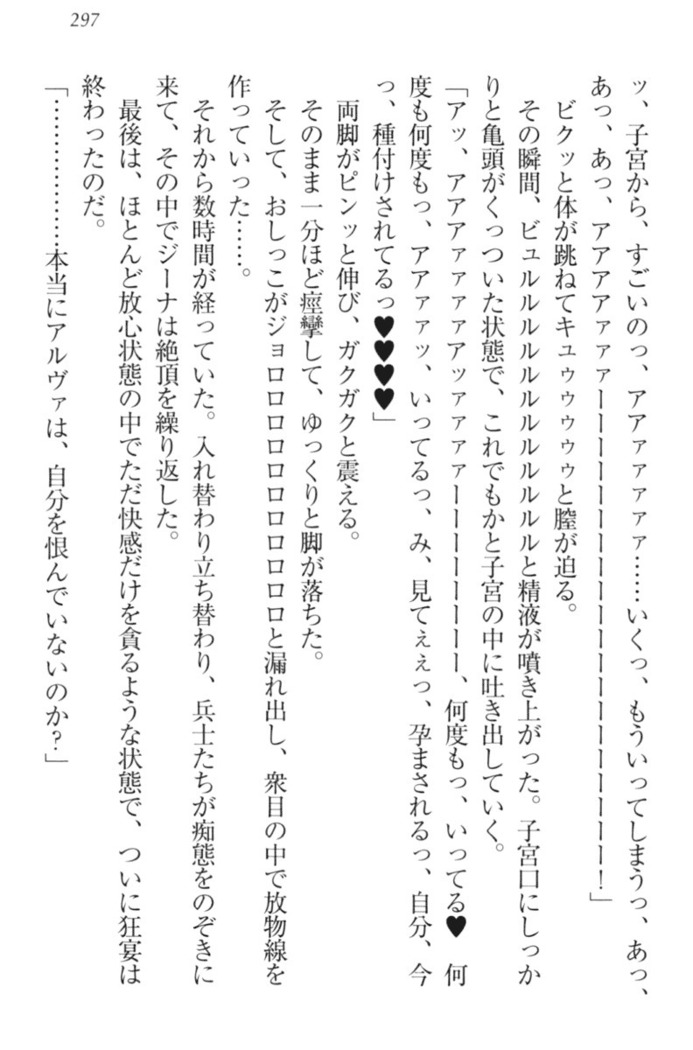 297
ッ、子宮から、すごいのっ、アアァァァァァ……いくっ、もういってしまうっ、あっ、
あっ、あっ、アアアアァァァーーーーーーーーーーーーーーーーーーーー！」
ビクッと体が跳ねてキュゥゥゥゥゥと膣が迫る。
その瞬間、ビュルルルルルルルルルルルルルと精液が噴き上がった。子宮口にしっか
りと亀頭がくっついた状態で、これでもかと子宮の中に吐き出していく。
「アッ、アアアァァァァアッァァァァーーーーーーー、何度もっ、いってる♥　何
度も何度もっ、アアァァッ、いってるっ、み、見てぇぇっ、孕まされるっ、自分、今
っ、種付けされてるっ♥♥♥♥」
両脚がピンッと伸び、ガクガクと震える。
そのまま一分ほど痙攣して、ゆっくりと脚が落ちた。
そして、おしっこがジョロロロロロロロロロロと漏れ出し、衆目の中で放物線を
作っていった……。
それから数時間が経っていた。入れ替わり立ち替わり、兵士たちが痴態をのぞきに
来て、その中でジーナは絶頂を繰り返した。
最後は、ほとんど放心状態の中でただ快感だけを貪るような状態で、ついに狂宴は
終わったのだ。
「………………本当にアルヴァは、自分を恨んでいないのか？」